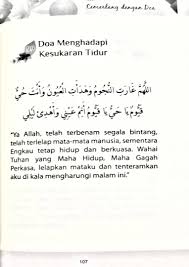 Cemerlang dengan Doa
Doa Menghadapi
Kesukaran Tidur
اللَّهُمَّ غَارَتِ النُّجُومُ وَهَدَأَتِ الْعُيُونُ وَأَنْتَ حَيٌّ
قَيُّومٌ يَا حَيُّ يَا قَيُّومُ أَنِمْ عَيْنِي وَأَهْدِئْ لَيْلِي
"Ya Allah, telah terbenam segala bintang,
telah terlelap mata-mata manusia, sementara
Engkau tetap hidup dan berkuasa. Wahai
Tuhan yang Maha Hidup, Maha Gagah
Perkasa, lelapkan mataku dan tenteramkan
aku di kala mengharungi malam ini."
107